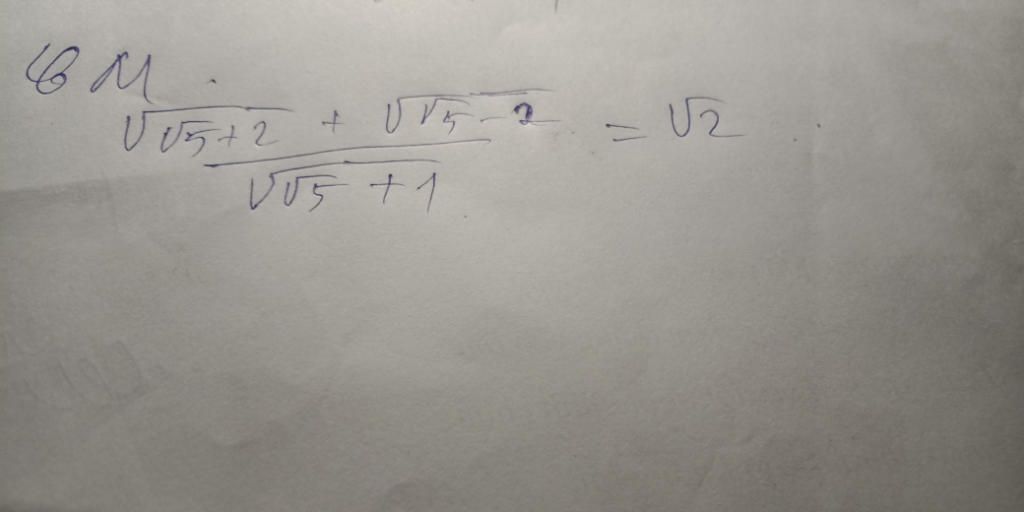 CM
(√(√5+2) + √(√5-2)) / √(√5+1) = √2